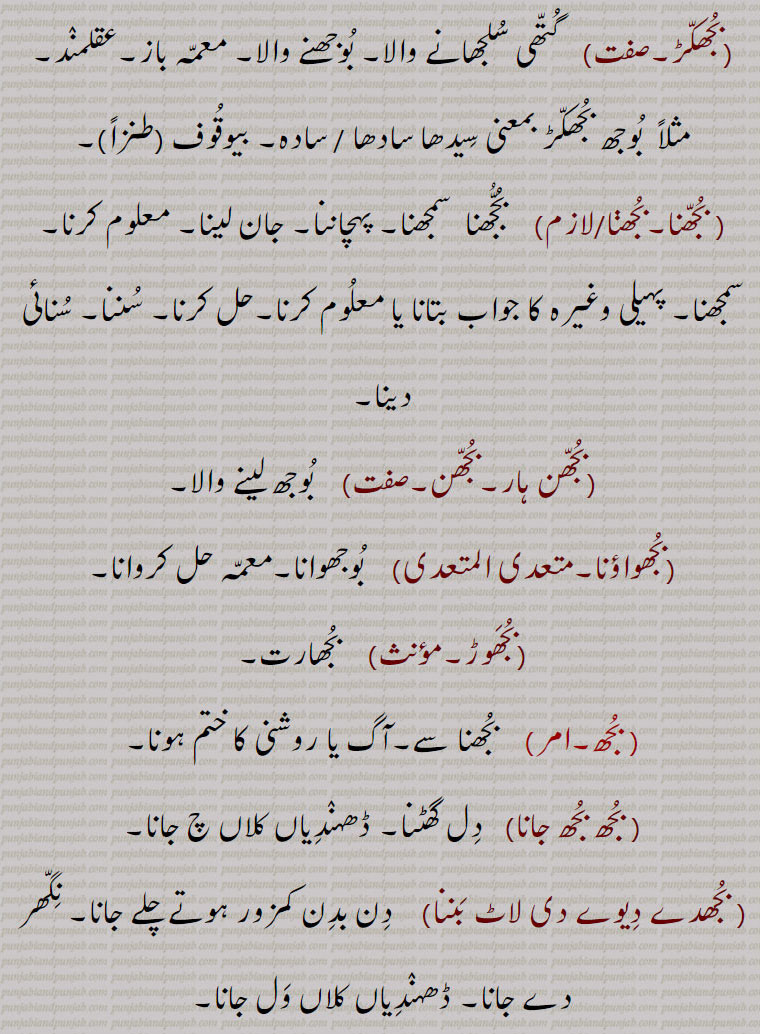 (بُجھکّڑ۔صفت) گُتّھی سُلجھانے والا۔ بُوجھنے والا۔ معمّہ باز۔عقلمنْد۔
مثلاً بُوجھ بُجھکّڑ بمعنی سِیدھا سادھا / سادہ۔ بیوقُوف (طنزاً)۔
(بُجّھنا۔بُجھݨا/لازم) بُجُّھنا سمجھنا۔ پہچاننا۔ جان لینا۔ معلوم کرنا۔
سمجھنا۔ پہیلی وغیرہ کا جواب بتانا یا معلُوم کرنا۔حل کرنا۔ سُننا۔ سُنائی
دینا۔
(بُجّھن ہار۔بُجّھن۔صفت) بُوجھ لینے والا۔
(بُجھواؤنا۔متعدی المتعدی) بُوجھوانا۔معمّہ حل کروانا۔
(بُجَھوڑ۔مؤنث) بُجھارت۔
(بُجھ۔امر) بُجھنا سے۔آگ یا روشنی کا ختم ہونا۔
(بُجھ بُجھ جانا) دِل گھٹنا۔ ڈھہنْدِیاں کلاں چ جانا۔
(بُجھدے دِیوے دی لاٹ بَننا) دِن بدِن کمزور ہوتے چلے جانا۔ نِگّھر
دے جانا۔ ڈھہنْدِیاں کلاں وَل جانا۔